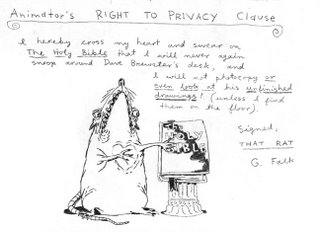 Animator's RIGHT TO PRIVACY Clause
I hereby cross my heart and swear on
The Holy Bible that I will never again
snoop around Dave Brewster's desk, and
I will not photocopy or
even look at his unfinished
drawings! (unless I find
them on the floor).
Signed,
THAT RAT
G. Falk
HOLY
BIBLE